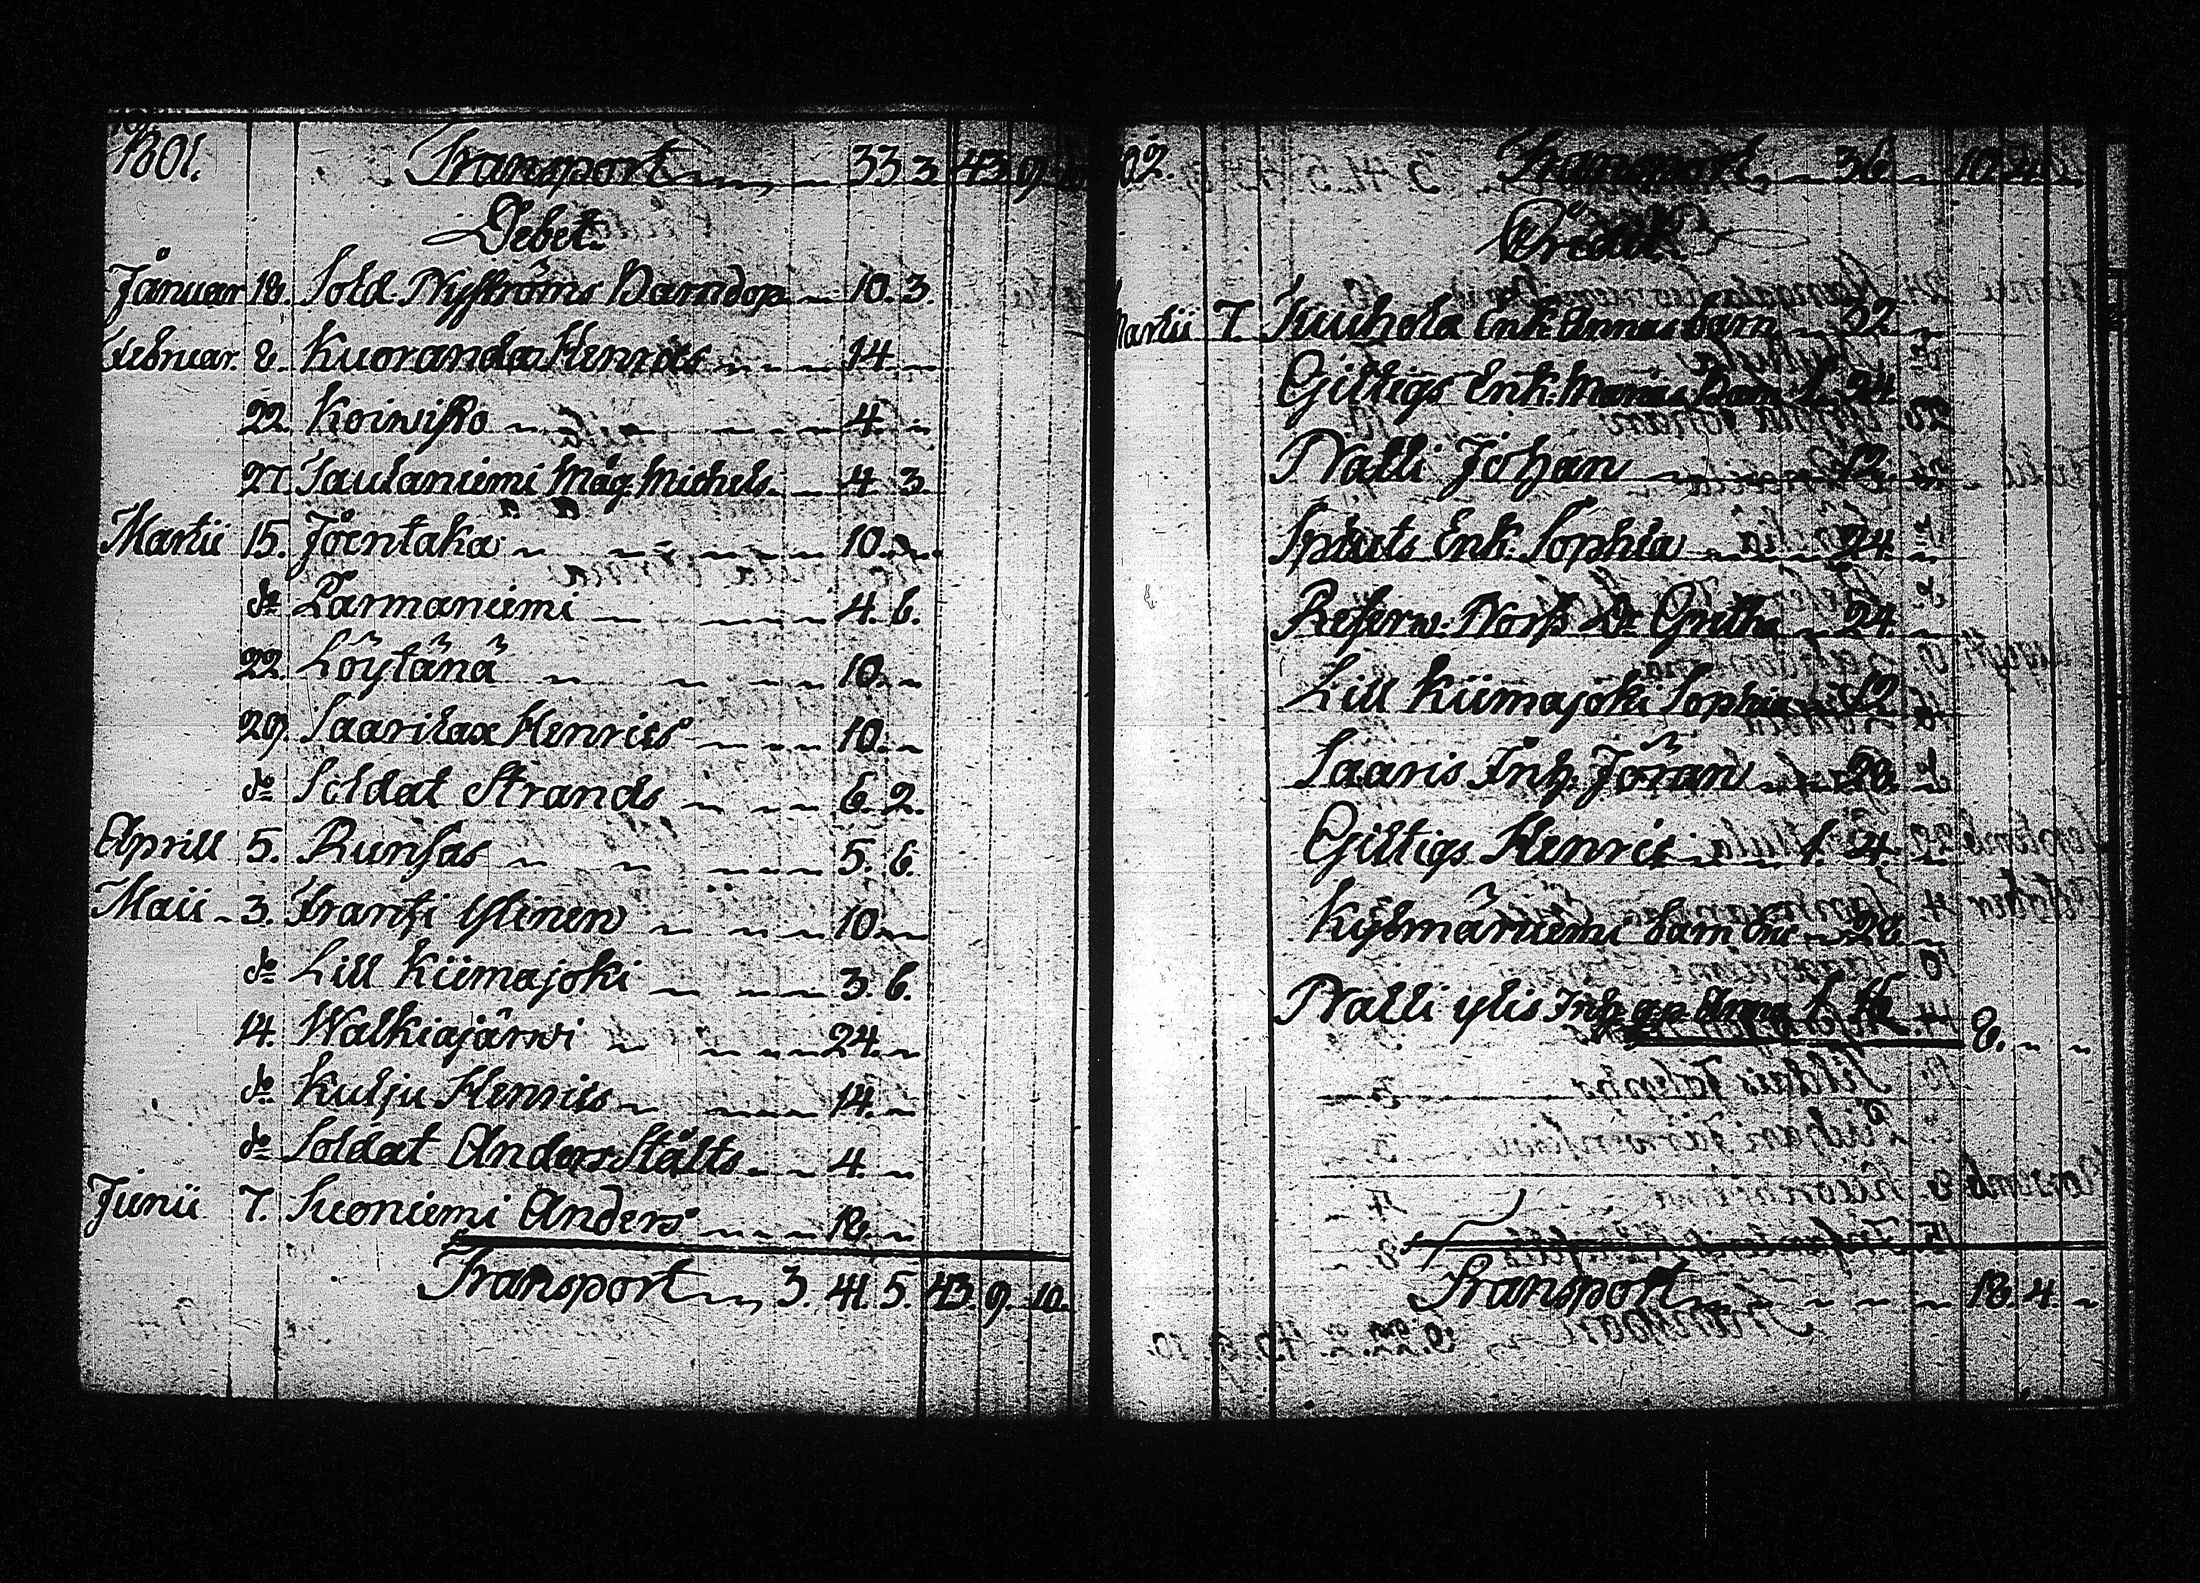 1801. Transport 33. 3. 43. 9. 10.
Debet.
Januar 18. Sold. Nyströms Barndop 10. 3.
Februar. 8. Kuoranda Henrics 14.
22. Koiwisto 4.
27. Saulaniemi Måg Michels 4. 3.
Martii 15. Joentaka 10.
do Parmaniemi 4. 6.
22. Löytänä 10.
29. Saarilax Henrics 10.
do Soldat Strands 6. 2.
Aprill 5. Runsas 5. 6.
Maii 3. Frantsi ylinen 10.
do Lill Kiimajoki 3. 6.
14. Walkiajärwi 24.
do Kulju Henrics 14.
do Soldat Anders Stålts 4.
Junii 7. Suoniemi Anders 18.
Transport 3. 41. 5. 43. 9. 10.
1802. Transport 36
Credit.
Martii 7. Juuhola Enk. Annas barn 32
Giltigs Enk. Marias Barn 1. 24.
Nalli Johan 12.
Enk. Sophia 24.
Reserv. Norss Dr Gretha 24.
Lill Kiimajoki Sophia 12
Saaris Inh. Jöran 28.
Giltigs Henric 1. 24.
Kylmäniemi barn 28
Nalli ylis Inh. Anna 1. 16. 8.
Transport 18. 4.